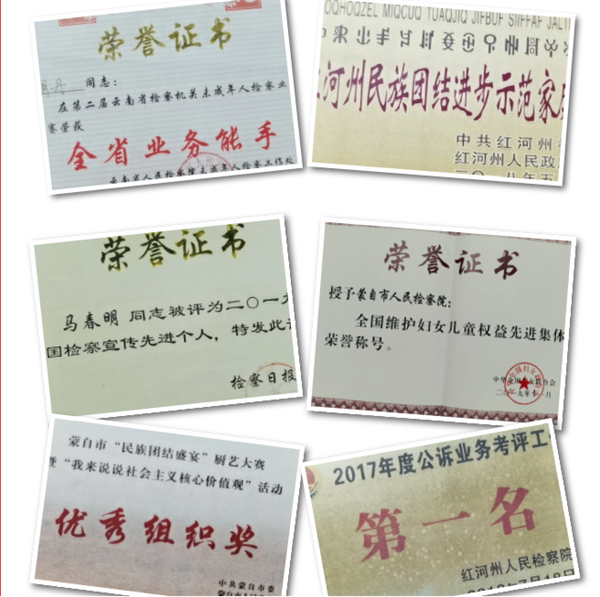 荣誉证书
丹 同志：
在第二届云南省检察机关未成年人检察业
赛荣获
全省业务能手
云南省人民检察院未成年人检察工作处
OQHOQZEL MIQCUQ TUAQJIQ JIFBUF SIIFFAF JALI
红河州民族团结进步示范家庭
中共红河州
红河州人民政
二〇一八年五
荣誉证书
马春明 同志被评为二〇一九
国检察宣传先进个人，特发此证
检察日报
荣誉证书
授予蒙自市人民检察院：
全国维护妇女儿童权益先进集体
荣誉称号。
二〇一九年十一月
蒙自市“民族团结盛宴”厨艺大赛
暨“我来说说社会主义核心价值观”活动
优秀组织奖
中共蒙自市委
2017年度公诉业务考评工
第一名
红河州人民检察院